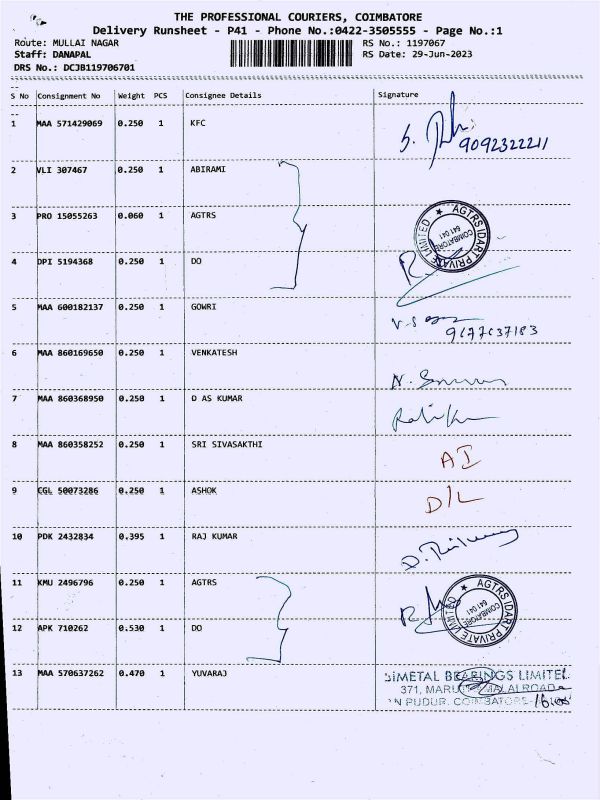 THE PROFESSIONAL COURIERS, COIMBATORE
Delivery Runsheet - P41 - Phone No.:0422-3505555 - Page No.:1
Route: MULLAI NAGAR RS No.: 1197067
Staff: DANAPAL RS Date: 29-Jun-2023
DRS No.: DCJB119706701
S No Consignment No Weight PCS Consignee Details Signature
1 MAA 571429069 0.250 1 KFC
9092322211
2 VLI 307467 0.250 1 ABIRAMI
3 PRO 15055263 0.060 1 AGTRS
AGTRS IDART PRIVATE LIMITED
COIMBATORE
641 041
4 DPI 5194368 0.250 1 DO
5 MAA 600182137 0.250 1 GOWRI
9677637183
6 MAA 860169650 0.250 1 VENKATESH
7 MAA 860368950 0.250 1 D AS KUMAR
8 MAA 860358252 0.250 1 SRI SIVASAKTHI
AI
9 CGL 50073286 0.250 1 ASHOK
D/L
10 PDK 2432834 0.395 1 RAJ KUMAR
11 KMU 2496796 0.250 1 AGTRS
AGTRS IDART PRIVATE LIMITED
COIMBATORE
641 041
12 APK 710262 0.530 1 DO
13 MAA 570637262 0.470 1 YUVARAJ
BIMETAL BEARINGS LIMITED
371, ROAD
N PUDUR, COIMBATORE-